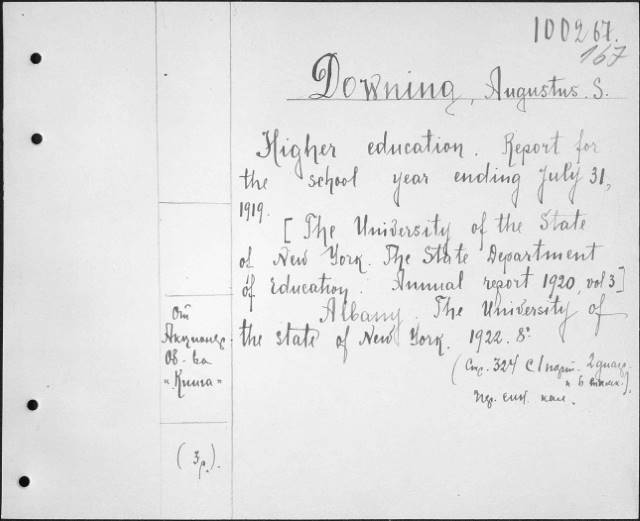 100267.
167
Downing, Augustus S.
Higher education. Report for
the school year ending July 31,
1919.
[The University of the State
of New York. The State Department
of Education. Annual report 1920, vol 3]
Albany. The University of
the state of New York. 1922. 8°
(Стр. 324 с 1 портр. 2 диагр.
и 6 
От
Акционер.
Об-ва
"Книга"
(3р.).